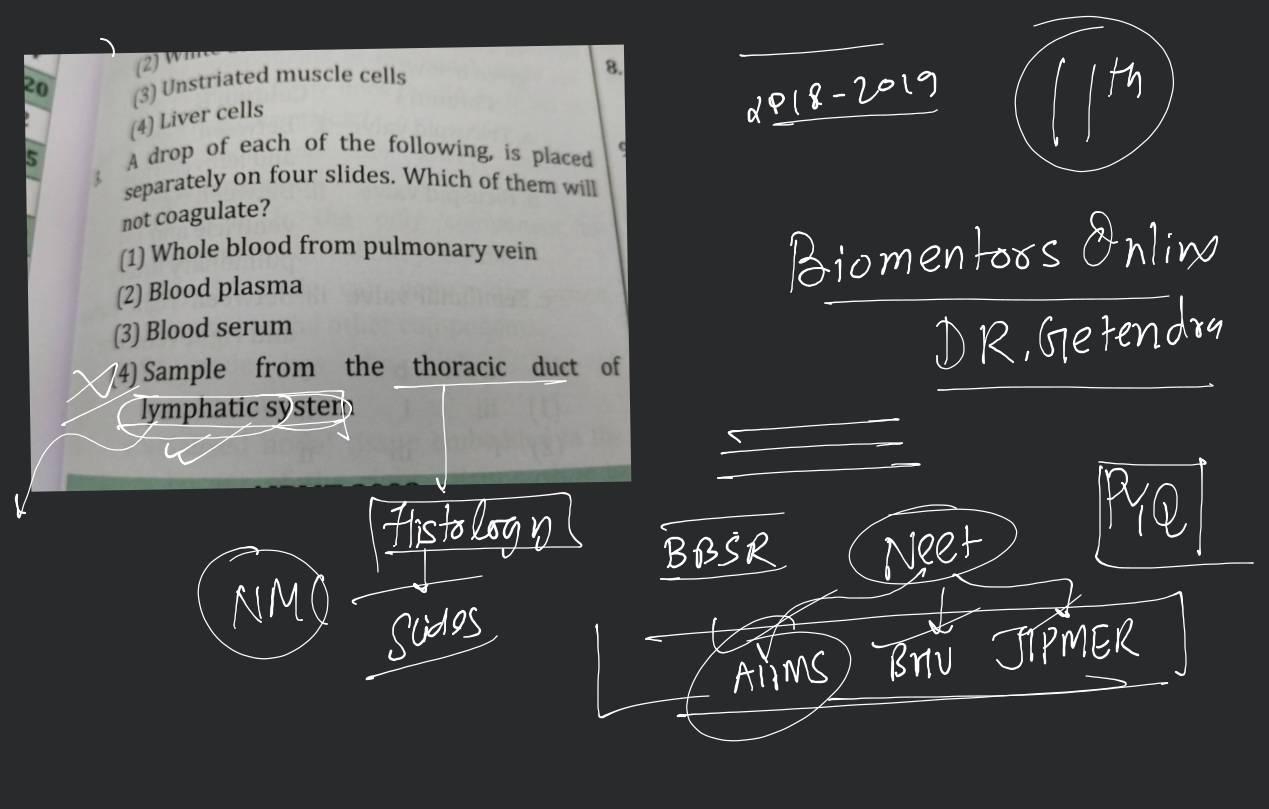 20
5
(3) Unstriated muscle cells
(4) Liver cells
A drop of each of the following, is placed
separately on four slides. Which of them will
not coagulate?
(1) Whole blood from pulmonary vein
(2) Blood plasma
(3) Blood serum
(4) Sample from the thoracic duct of
lymphatic system
8.
Histology
Slides
NMC
2018-2019
11th
Biomentors Online
DR. Getendra
BBSR
Neet
PYQ
AIIMS BHU JIPMER